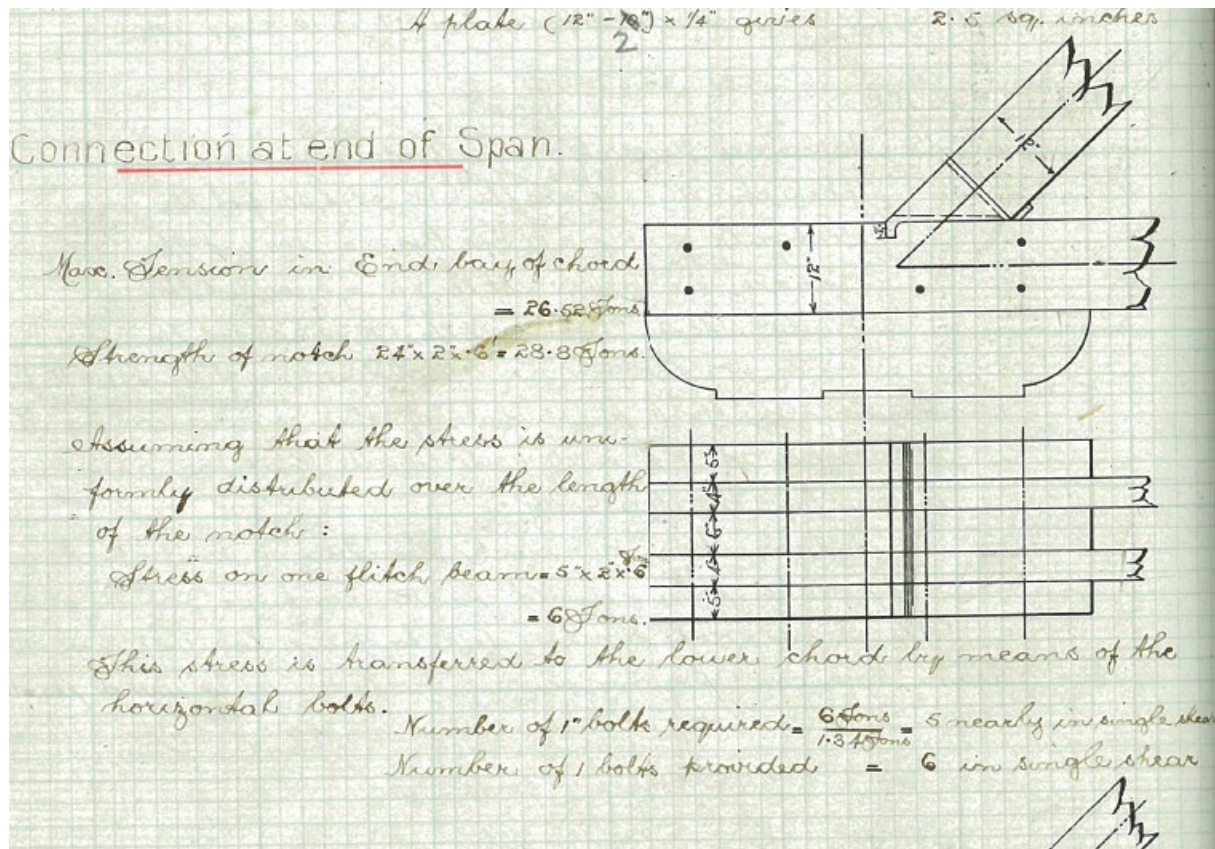 A plate (12" - 2") × 1/4" gives 2.5 sq. inches
Connection at end of Span.
12"
Max. Tension in End bay of chord
12"
= 26.52 Tons
Strength of notch 24" × 2" × .6 = 28.8 Tons.
Assuming that the stress is uni-
formly distributed over the length
of the notch :
Stress on one flitch beam = 5" × 2" × .6
= 6 Tons.
5" 4" 6" 4" 5"
This stress is transferred to the lower chord by means of the
horizontal bolts.
Number of 1" bolts required = 6 Tons / 1.34 Tons = 5 nearly in single shear
Number of 1 bolts provided = 6 in single shear